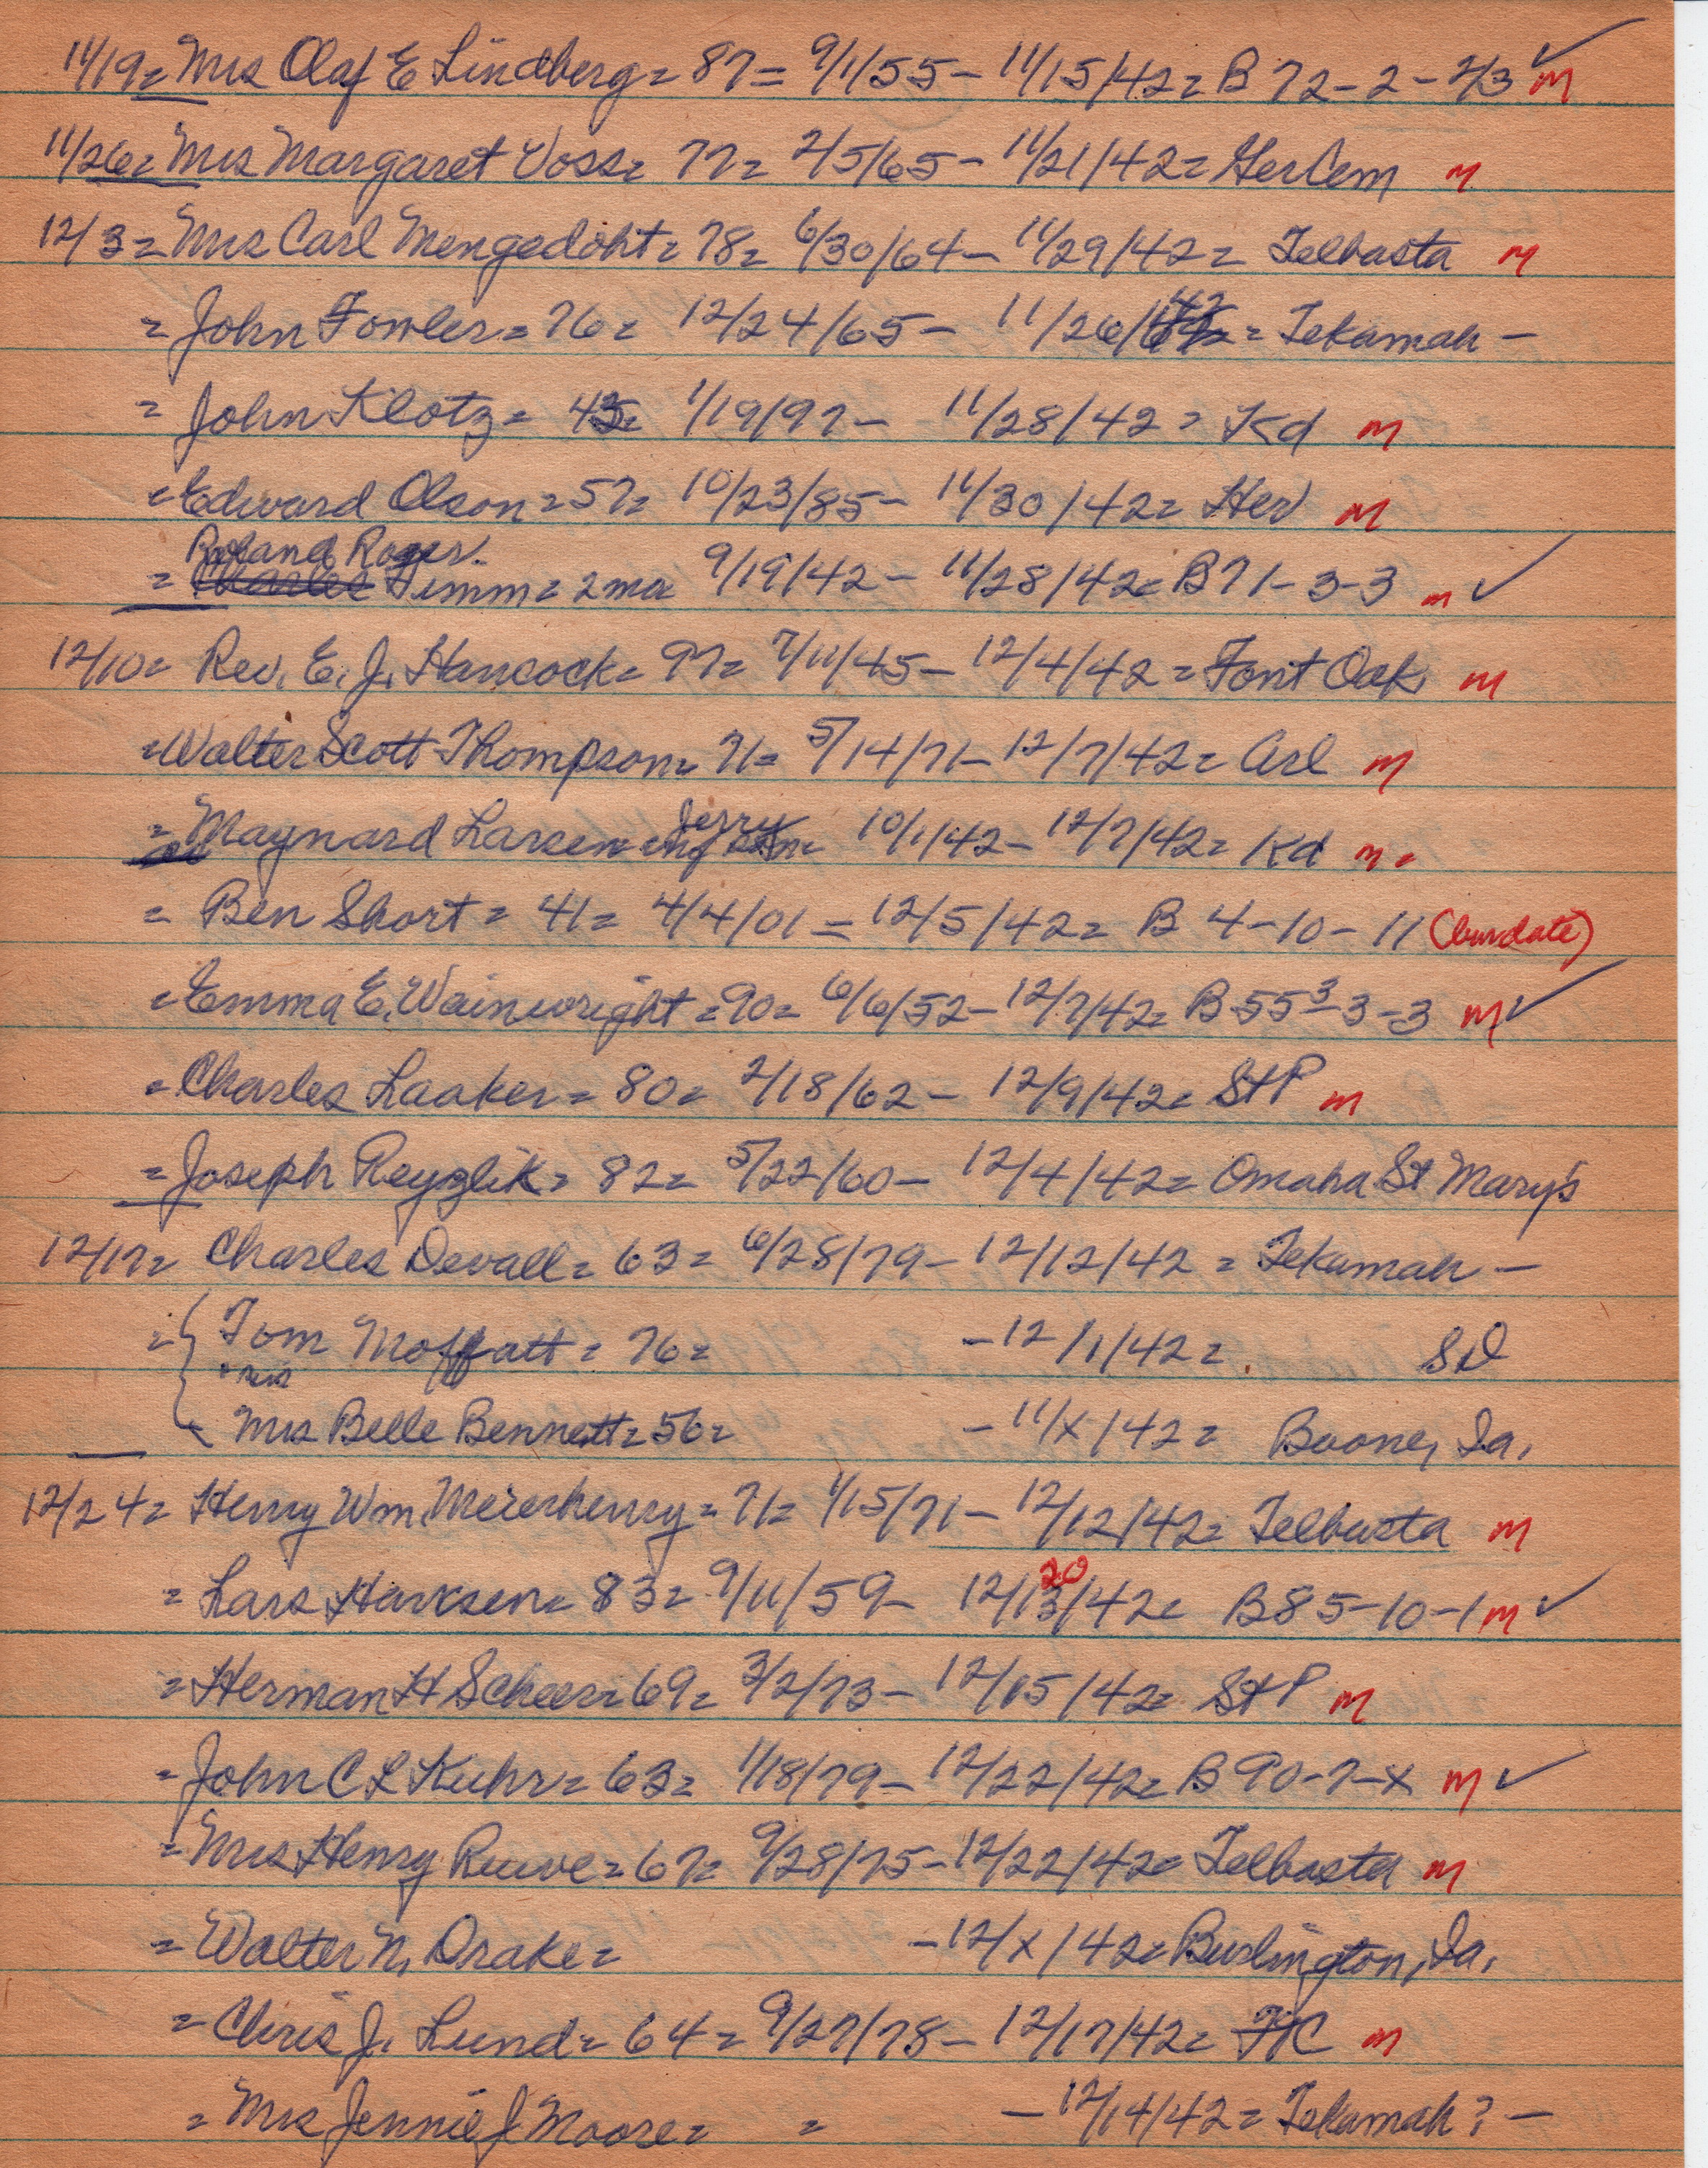 11/19= Mrs Olaf E Lindberg= 87= 9/1/55- 11/15/42= B 72-2-2/3 ✓ m
11/26= Mrs Margaret Voss= 77= 2/5/65- 11/21/42= HerCem m
12/3= Mrs Carl Mengedoht= 78= 6/30/64- 11/29/42= Telbasta m
= John Fowler= 76= 12/24/65- 11/26/42 = Tekamah -
= John Klotz= 45= 1/19/97- 11/28/42= Kd m
= Edward Olson= 57= 10/23/85- 11/30/42= Her m
Roland Roger
= Charles Timm= 2mo 9/19/42- 11/28/42= B71-3-3 m ✓
12/10= Rev. E. J. Hancock= 97= 7/11/45- 12/4/42= Font Oak m
= Walter Scott Thompson= 71= 5/14/71- 12/7/42= Arl m
Jerry
= Maynard Larsen= inf son= 10/1/42- 12/7/42= Kd m =
= Ben Short= 41= 4/4/01= 12/5/42= B 4-10-11 (burdate)
= Emma E. Wainwright= 90= 6/6/52- 12/7/42= B 55³-3-3 m ✓
= Charles Laaker= 80= 2/18/62- 12/9/42= StP m
= Joseph Reyzlik= 82= 5/22/60- 12/4/42= Omaha St Mary's
12/17= Charles Devall= 63= 6/28/79- 12/12/42= Tekamah -
= { Tom Moffatt= 76= -12/1/42= SD
" sis
Mrs Belle Bennett= 56= -11/x/42= Boone, Ia.
12/24= Henry Wm. Meierhenry= 71= 1/15/71- 12/12/42= Telbasta m
20
= Lars Havksen= 83= 9/11/59- 12/13/42= B85-10-1 m ✓
= Herman H Scheer= 69= 3/2/73- 12/15/42= StP m
= John C L Kuhr= 63= 1/18/79- 12/22/42= B 90-7-x m ✓
= Mrs Henry Ruwe= 67= 9/28/75- 12/22/42= Telbasta m
= Walter N. Drake= -12/x/42= Burlington, Ia.
= Chris J. Lund= 64= 9/27/78- 12/17/42= FtC m
= Mrs Jennie J Moore= = -12/14/42= Tekamah? -